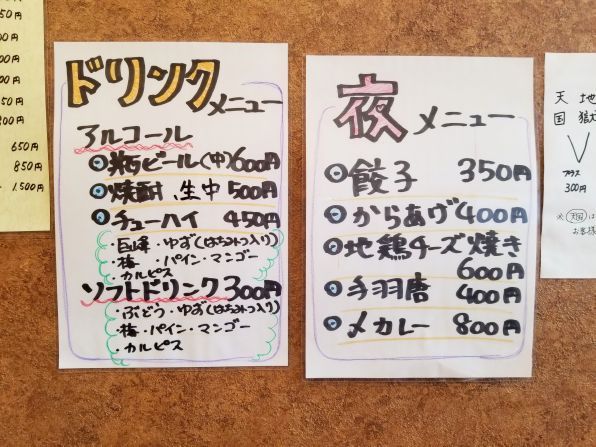 00円
650円
850円
1,500円
ドリンク
メニュー
アルコール
◎瓶ビール(中)600円
◎焼酎、生中 500円
◎チューハイ 450円
・巨峰・ゆず(はちみつ入り)
・梅・パイン・マンゴー
・カルピス
ソフトドリンク300円
・ぶどう・ゆず(はちみつ入り)
・梅・パイン・マンゴー
・カルピス
夜メニュー
◎餃子 350円
◎からあげ400円
◎地鶏チーズ焼き
600円
◎手羽唐 400円
◎〆カレー 800円
天 地
国 獄
プラス
300円
※天国は
お客様